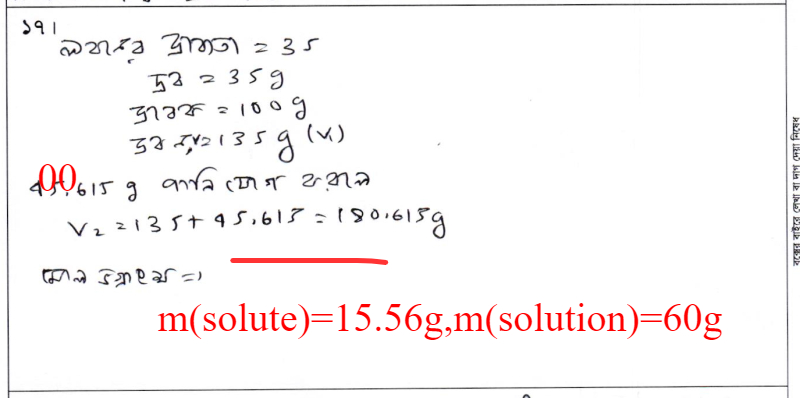 ১৭।
লবনের দ্রাব্যতা = 35
দ্রব = 35g
দ্রাবক = 100g
দ্রবন = 135g (V₁)
00
45.615 g পানি যোগ করলে
V₂ = 135 + 45.615 = 180.615g
মোল ভগ্নাংশ =>
m(solute)=15.56g,m(solution)=60g
বক্সের বাইরে লেখা বা দাগ দেয়া নিষেধ